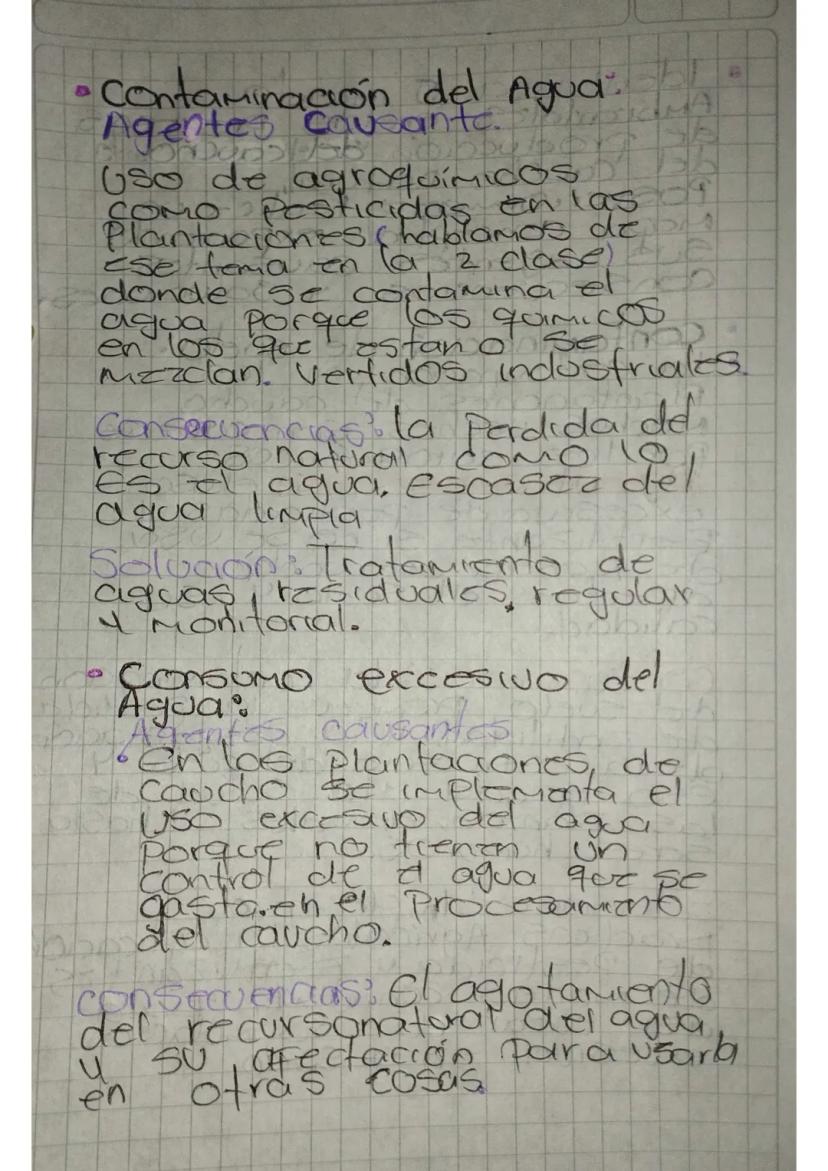 • Contaminación del Agua:
Agentes Causante.
Uso de agroquímicos
como Pesticidas en las
Plantaciones (hablamos de
ese tema en la 2 clase)
donde se contamina el
agua porque los quimicos
en los que estan o se
mezclan. Vertidos industriales.
Consecuencias: la Perdida del
recurso natural como lo
es el agua, escasez del
agua limpia
Solución: Tratamiento de
aguas residuales, regular
y monitorial.
• Consumo excesivo del
Agua:
Agentes causantes
• En los Plantaciones de
caucho se implementa el
uso excesivo del agua
porque no tienen un
control de el agua que se
gasta.en el Procesamiento
del caucho.
consecuencias: El agotamiento
del recursonatural del agua
y su afectación para usarla
en otras cosas